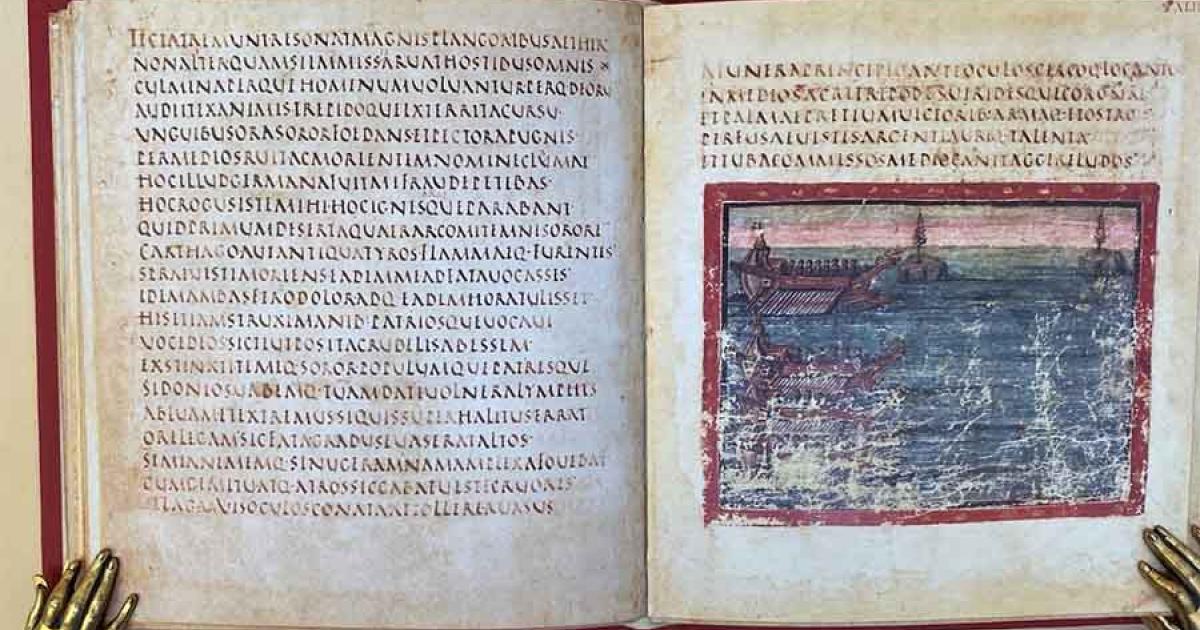 TECTAFREMUNTRESONATMAGNISPLANGORIBUSAETHER
NONALITERQUAMSIIMMISSARUATHOSTIBUSOMNIS
CULMINAPERQUEHOMINUMUOLUANTURPERQ·DEORU
AUDITEXANIMISTREPIDOQUEEXTERRITACURSU·
UNGUIBUSORASORORFOEDANSETPECTORAPUGNIS·
PERMEDIOSRUITACMORIENTEMNOMINECLAMAT
HOCILLUDGERMANAFUITMEFRAUDEPETEBAS·
HOCROGUSISTEMIHIHOCIGNISQUEPARABANT
QUIDPRIMUMDESERTAQUAERARCOMITEMNESORORE
CARTHAGOAUTANTIQUATYROSFLAMMAEQ·FURENTIS
SPREUISTIMORIENSEADEMMEADFATAUOCASSES
IDEMAMBASFERRODOLORADQ·EADEMHORATULISSET
HISETIAMSTRUXIMANIB·PATRIOSQUEUOCAUI
UOCEDEOSSICTEUTPOSITACRUDELISABESSEM·
EXSTINXTITEMEQ·SORORPOPULUMQUEPATRESQUE
SIDONIOSURBEMQ·TUAMDATEUOLNERALYMPHIS
ABLUAMETEXTREMUSSIQUISSUPERHALITUSERRAT
ORELEGAMSICFATAGRADUSEUASERATALTOS·
SEMIANIMEMQ·SINUGERMANAMAMPLEXAFOUEBAT
CUMGEMITUATQ·ATROSSICCABATUESTECRUORES
ILLAGRAUISOCULOSCONATAATTOLLERERURSUS
MUNERAPRINCIPIOANTEOCULOSCIRCOQ·LOCANTUR
INMEDIOSACRITRIPODESUIRIDESQUECORONAE
ETPALMAEPRETIUMUICTORIB·ARMAQ·ETOSTRO
PERFUSAEUESTISARGENTIAURIQ·TALENTA
ETTUBACOMMISSOSMEDIOCANITAGGERELUDOS